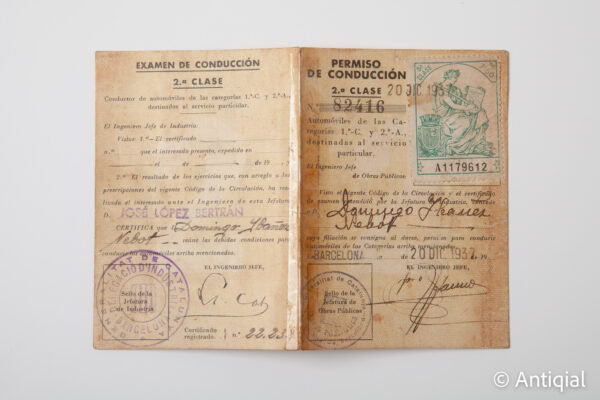 EXAMEN DE CONDUCCIÓN
2.ª CLASE
Conductor de automóviles de las categorías 1.ª-C. y 2.ª-A.,
destinados al servicio particular.
El Ingeniero Jefe de Industria:
Visto: 1.º - El certificado
n.º que el interesado presenta, expedido en
de de 19
2.º El resultado de los ejercicios que, con arreglo a las
prescripciones del vigente Código de la Circulación, ha rea-
lizado el interesado ante el Ingeniero de esta Jefatura
JOSÉ LÓPEZ BERTRÁN
CERTIFICA que Domingo Ibáñez
Nebot reúne las debidas condiciones para
de las categorías arriba mencionadas.
EL INGENIERO JEFE,
GENERALITAT DE CATALUNYA
BARCELONA
Sello de la
Jefatura
de Industria
Certificado
registrado. n.º 22.23
PERMISO
DE CONDUCCIÓN
2.ª CLASE 20 DIC. 1937
N.º 82416
Automóviles de las Ca-
tegorías 1.ª-C. y 2.ª-A.,
destinadas al servicio
particular.
El Ingeniero Jefe
de Obras Públicas
A1179612
Visto el vigente Código de la Circulación y el certificado
de examen por la Jefatura de Industria,
Domingo Ibañez
Nebot
cuya filiación se consigna al dorso, permiso para conducir
Automóviles de las Categorías arriba mencionadas.
BARCELONA 20 DIC. 1937 19
EL INGENIERO JEFE,
Generalitat de Catalunya
Sello de la
Jefatura de
Obras Públicas
© Antiqial